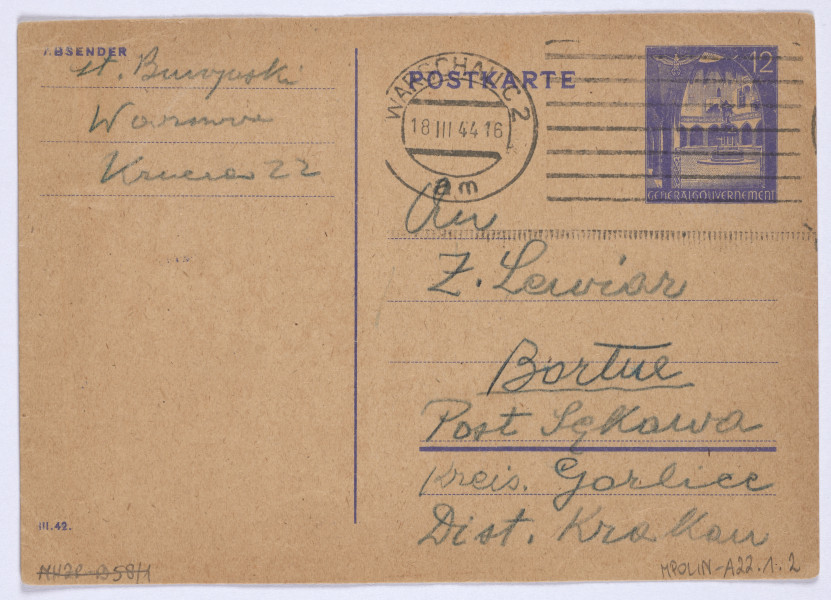 ABSENDER
st. Buvynski
Warszawa
Krucza 22
III.42.
POSTKARTE
WARSCHAU C 2
18 III 44 16
am
12
GENERALGOUVERNEMENT
An
Z. Lewiar
Bortne
Post Sękowa
Kreis. Gorlice
Dist. Krakau
MH2P-B58/1
MPOLIN-A22.1.2